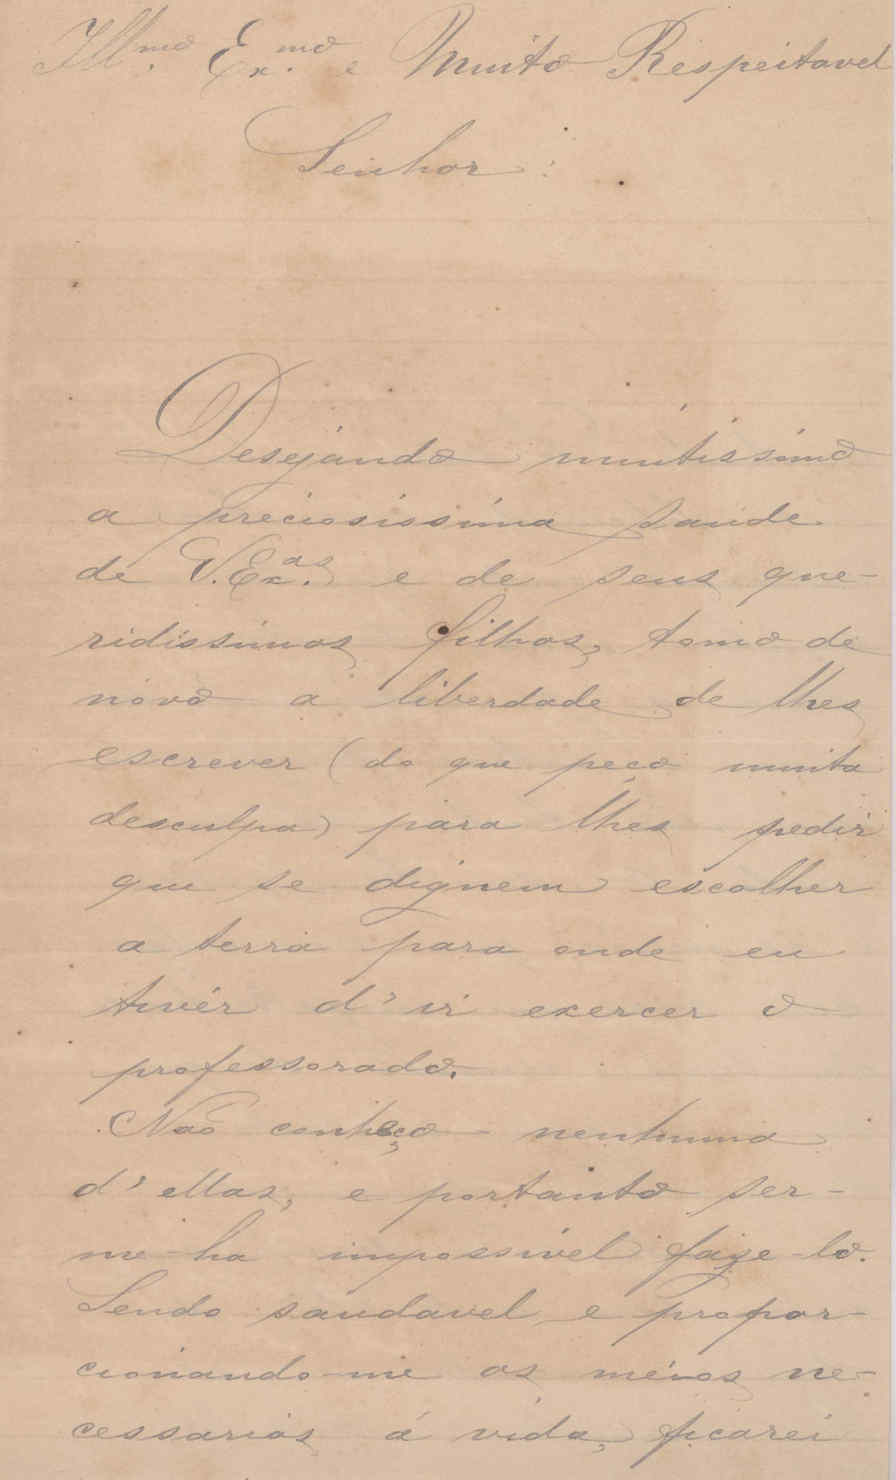 Ill.mo Ex.mo e Muito Respeitavel
Senhor:
Desejando muitissimo
a preciosissima saude
de V. Ex.as e de seus que-
ridissimos filhos, tomo de
novo a liberdade de lhes
escrever (do que peço muita
desculpa) para lhes pedir
que se dignem escolher
a terra para onde eu
tivér d'ir exercer o
professorado.
Não conheço nenhuma
d'ellas, e portanto ser-
me-ha impossivel faze-lo.
Sendo saudavel e propor-
cionando-me os meios ne-
cessarios á vida, ficarei